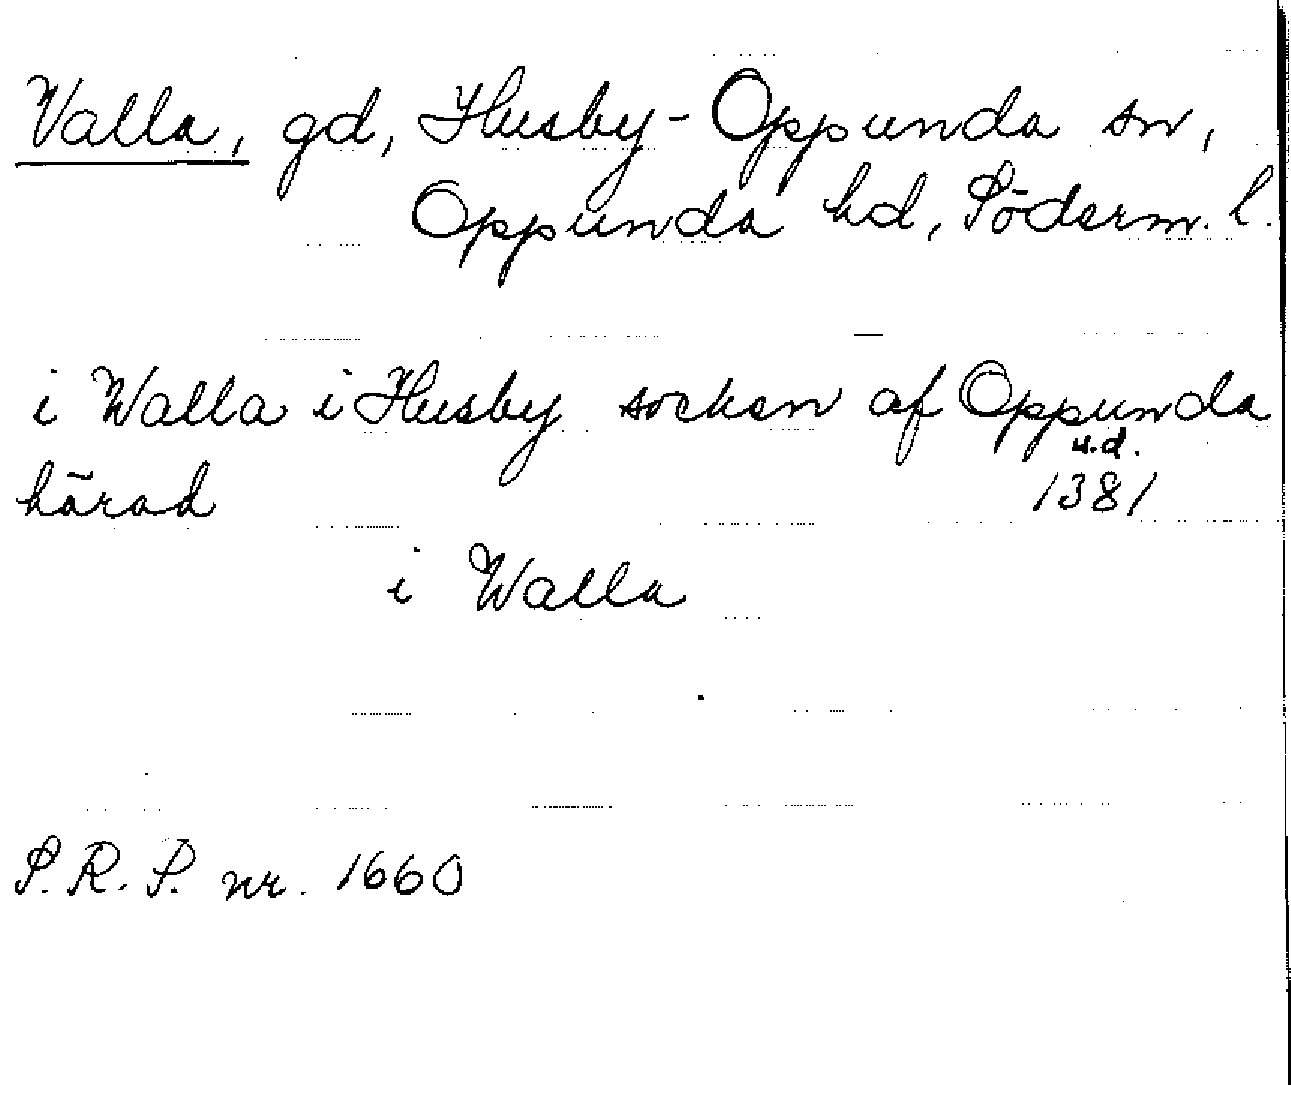 Valla, gd, Husby-Oppunda sn,
Oppunda hd, Söderm. l.
i Walla i Husby socken af Oppunda
u.d.
härad 1381
i Walla
S.R.P. nr. 1660